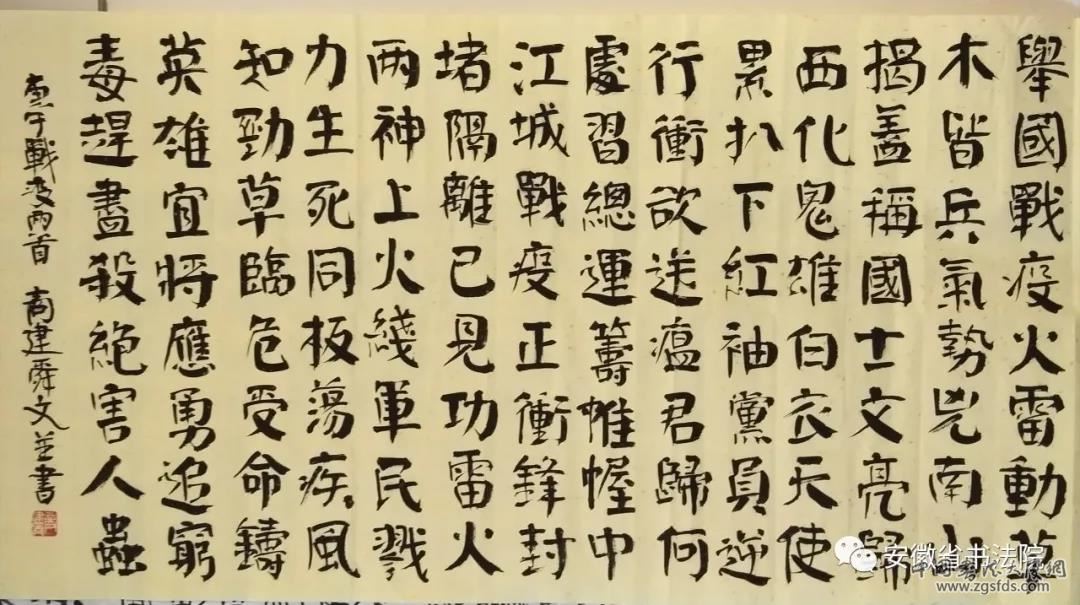 舉國戰疫火雷動草
木皆兵氣勢兇南山
揭蓋稱國士文亮歸
西化鬼雄白衣天使
累扒下紅袖黨員逆
行衝欲送瘟君歸何
處習總運籌帷幄中
江城戰疫正衝鋒封
堵隔離已見功雷火
兩神上火綫軍民戮
力生死同板蕩疾風
知勁草臨危受命鑄
英雄宜將應勇追窮
毒趕盡殺絕害人蟲
庚子戰疫兩首 商建舜文並書
安徽省书法院
www.zgsfds.com